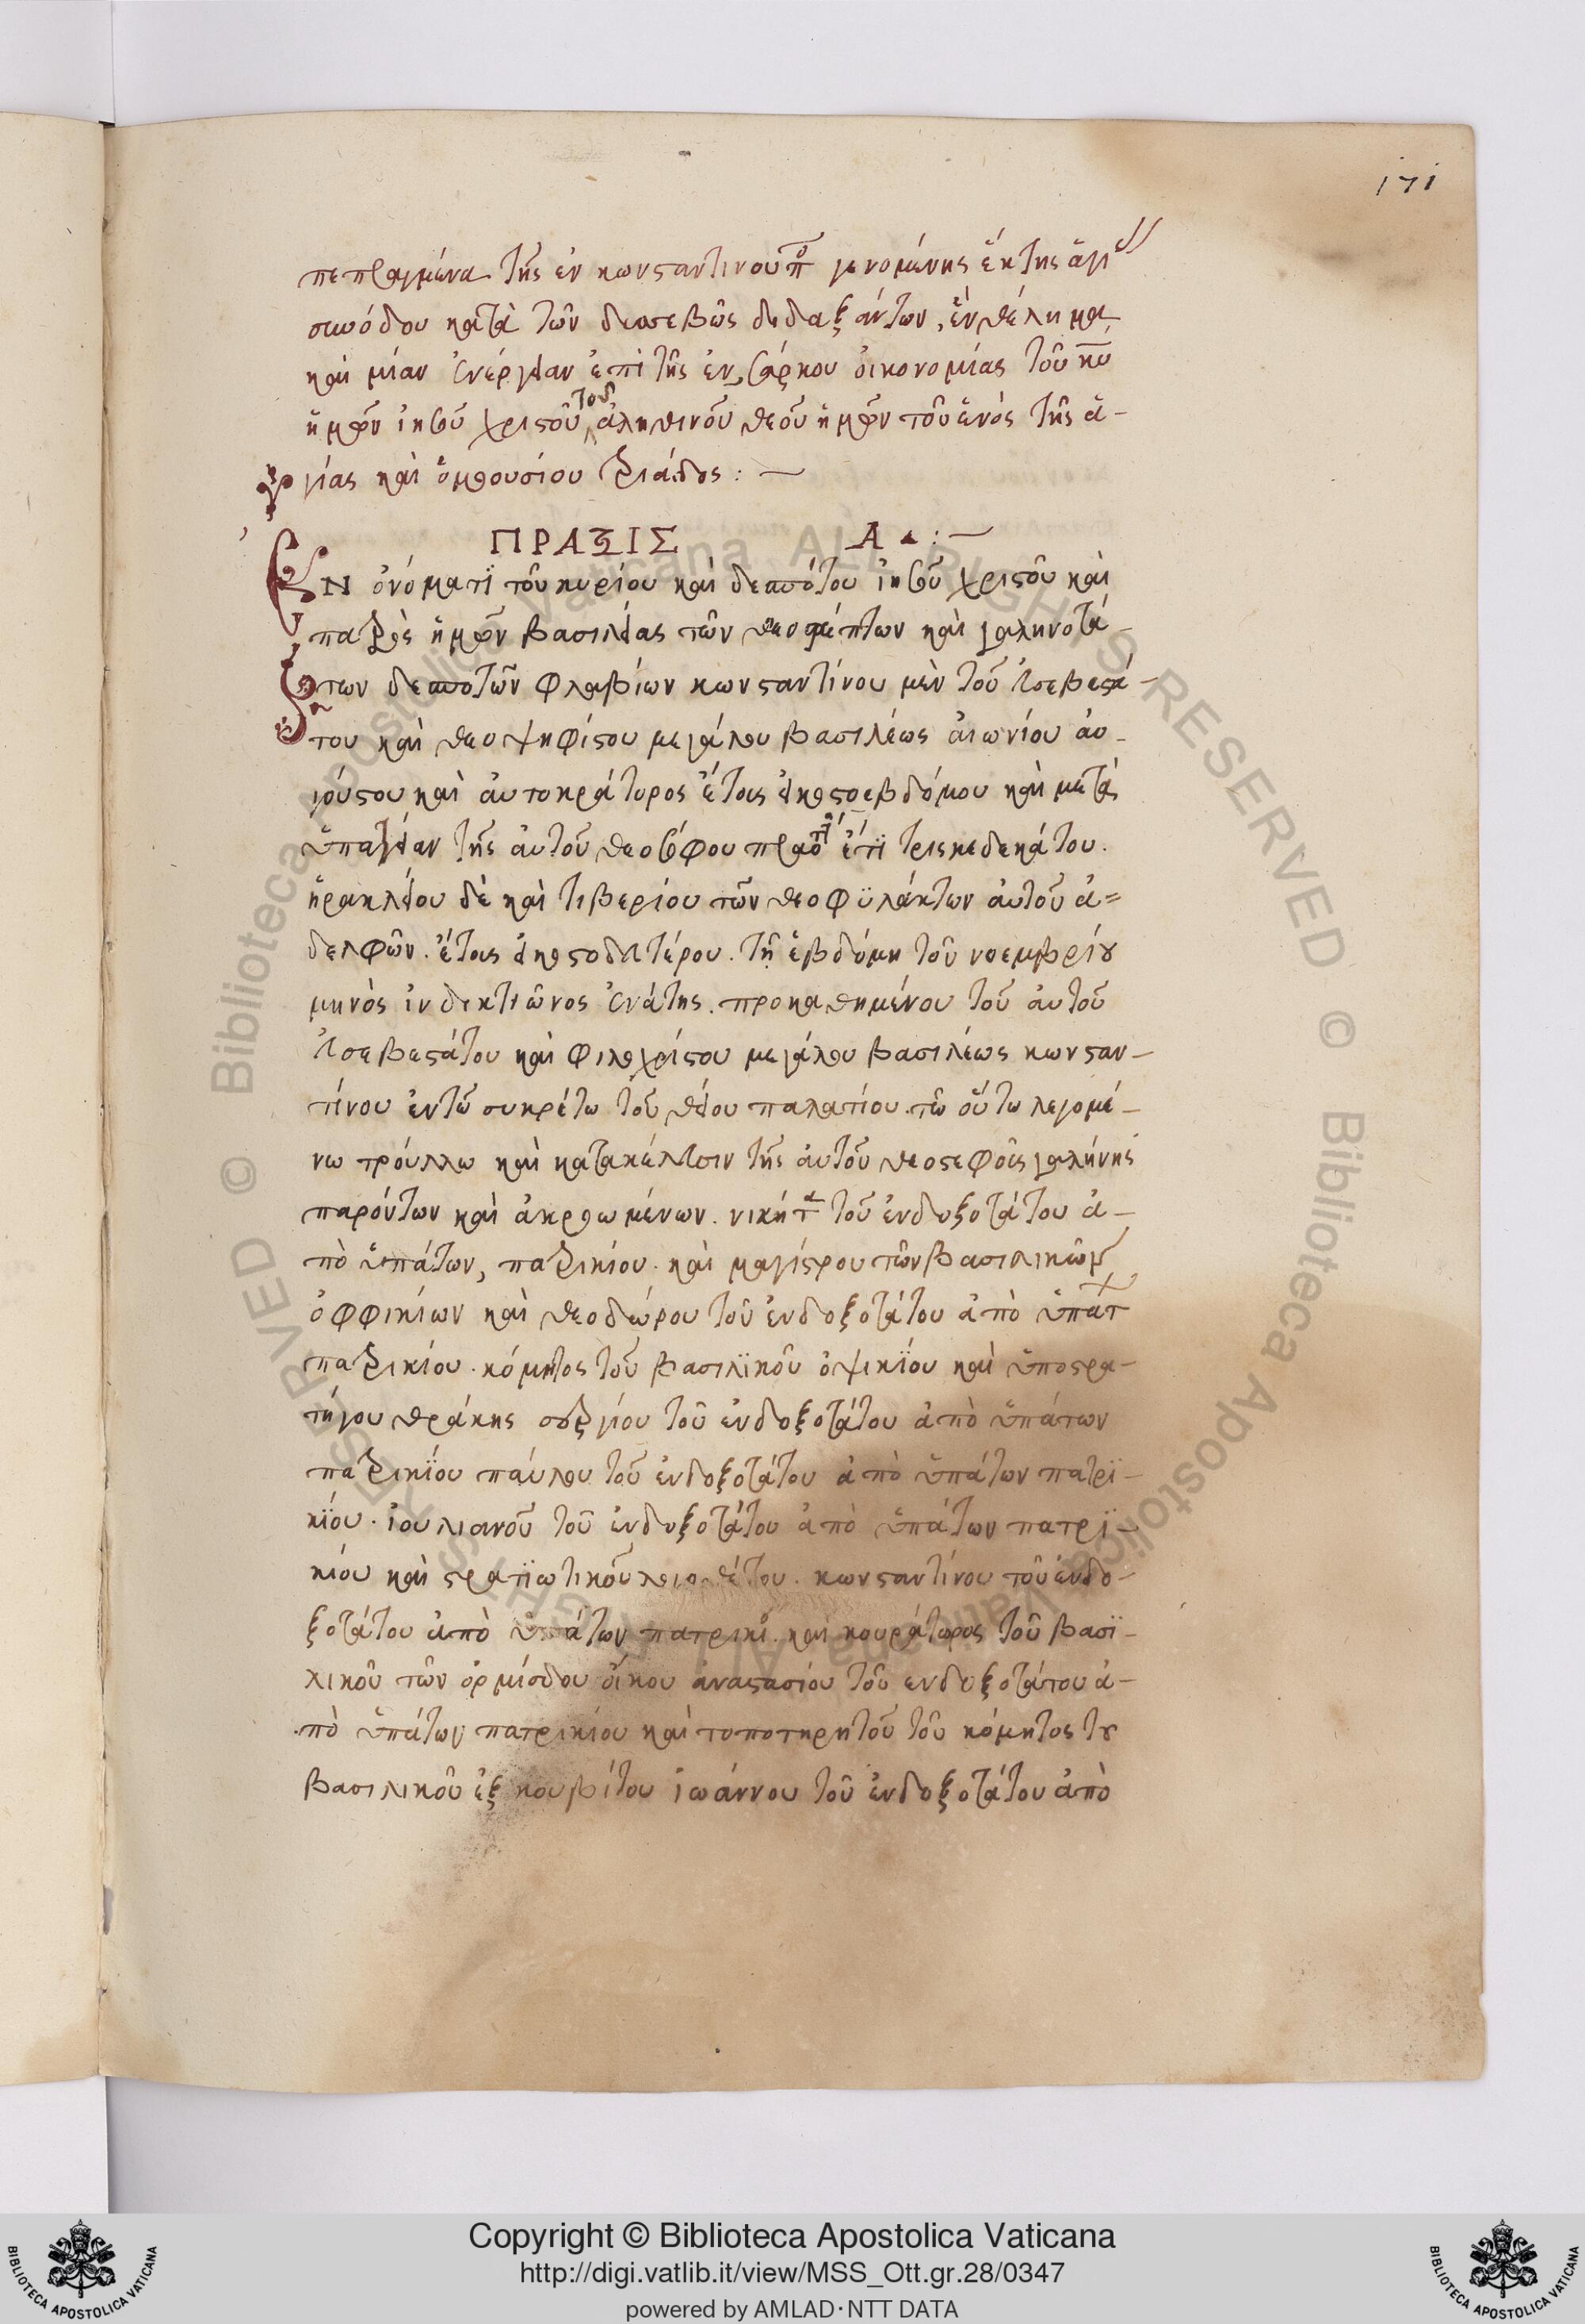 171
πεπραγμένα τῆς ἐν κωνσταντινουπ γενομένης ἕκτης ἁγί
συνόδου κατὰ τῶν δυσεβῶς διδαξάντων, ἓν θέλημα
καὶ μίαν ἐνέργειαν ἐπὶ τῆς ἐνσάρκου οἰκονομίας τοῦ κυ
ἡμῶν ἰησοῦ χριστοῦ τοῦ ἀληθινοῦ θεοῦ ἡμῶν τοῦ ἑνὸς τῆς ἁ-
γίας καὶ ὁμοουσίου τριάδος : —
ΠΡΑΞΙΣ Α :—
Ἐν ὀνόματϊ τοῦ κυρίου καὶ δεσπότου ἰησοῦ χριστοῦ καὶ
ἡμῶν βασιλείας τῶν καὶ γαληνοτά-
των δεσποτῶν φλαβίων κωνσταντίνου μὲν τοῦ εὐσεβεστά-
του καὶ θεοψηφίστου μεγάλου βασιλέως αἰωνίου αὐ-
γούστου καὶ αὐτοκράτορος ἔτους εἰκοστοεβδόμου καὶ μετὰ
ὑπατείαν τῆς αὐτοῦ θεοσόφου πραο ἔτϊ τρισκεδεκάτου.
ἡρακλείου δὲ καὶ τιβερίου τῶν θεοφϋλάκτων αὐτοῦ ἀ=
δελφῶν. ἔτους εἰκοστοδευτέρου. τῇ ἑβδόμη τοῦ νοεμβρίου
μηνὸς ἰνδικτιῶνος ἐνάτης. προκαθημένου τοῦ αὐτοῦ
εὐσεβεστάτου καὶ φιλοχρίστου μεγάλου βασιλέως κωνσταν-
τίνου ἐν τῶ συκρέτω τοῦ θείου παλατίου. τῶ οὕτω λεγομέ-
νω τρούλλω καὶ κατακέλευσιν τῆς αὐτοῦ θεοσεφοῦς γαλήνης
παρόντων καὶ ἀκροωμένων. νικήτ τοῦ ἐνδοξοτάτου ἀ-
πὸ ὑπάτων, πατρικίου. καὶ μαγίστρου τῶν βασιλικῶν
ὀφφικίων καὶ θεοδώρου τοῦ ἐνδοξοτάτου ἀπὸ ὑπάτ
πατρικίου. κόμητος τοῦ βασιλϊκοῦ ὀψικϊου καὶ ὑποστρα-
τήγου θράκης σεργίου τοῦ ἐνδοξοτάτου ἀπὸ ὑπάτων
πατρικϊου παύλου τοῦ ἐνδοξοτάτου ἀπὸ ὑπάτων πατρϊ-
κϊου. ἰουλιανοῦ τοῦ ἐνδοξοτάτου ἀπὸ ὑπάτων πατρϊ-
κίου καὶ στρατϊωτικοῦ λογοθέτου. κωνσταντίνου τοῦ ἐνδο-
ξοτάτου ἀπὸ ὑπάτων πατρικι. καὶ κουράτωρος τοῦ βασϊ-
λικοῦ τῶν ὁρμίσδου οἴκου ἀναστασίου τοῦ ενδοξοτάτου ἀ-
πὸ ὑπάτων πατρικίου καὶ τοποτηρητοῦ τοῦ κόμητος του
βασιλικοῦ ἐξκουβίτου ἰωάννου τοῦ ἐνδοξοτάτου ἀπὸ
© Biblioteca Apostolica Vaticana ALL RIGHTS RESERVED © Biblioteca Apostolica Vaticana ALL RIGHTS RESERVED
Copyright © Biblioteca Apostolica Vaticana
http://digi.vatlib.it/view/MSS_Ott.gr.28/0347
powered by AMLAD·NTT DATA
BIBLIOTECA APOSTOLICA VATICANA
BIBLIOTECA APOSTOLICA VATICANA